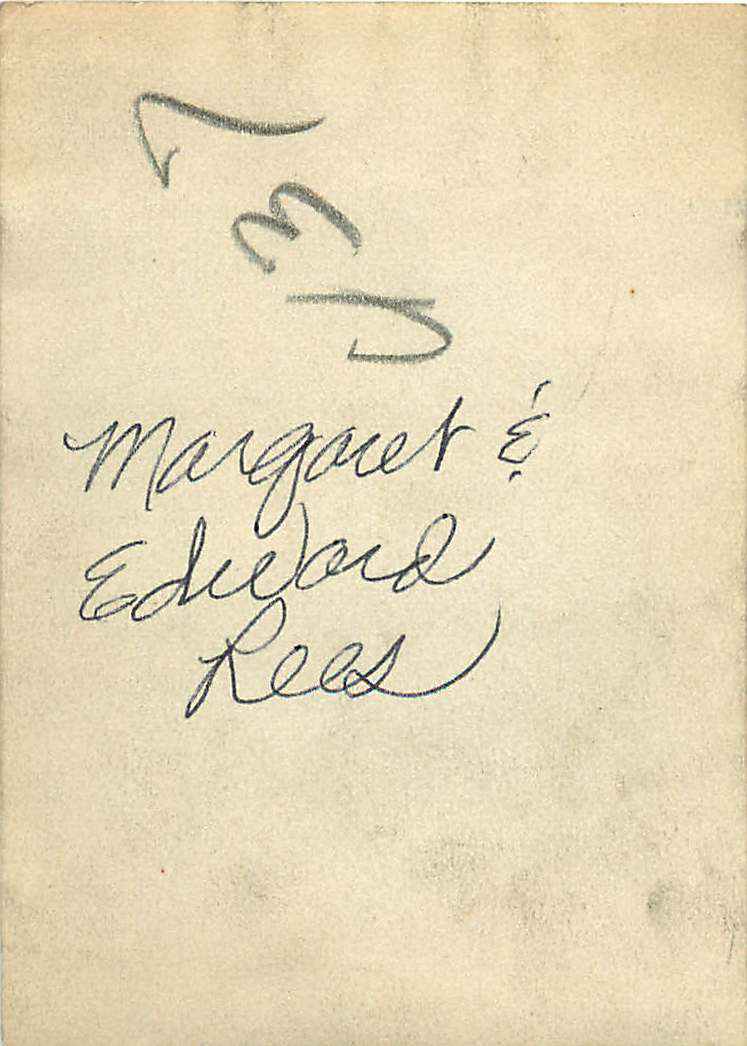 Margaret &
Edward
Rees